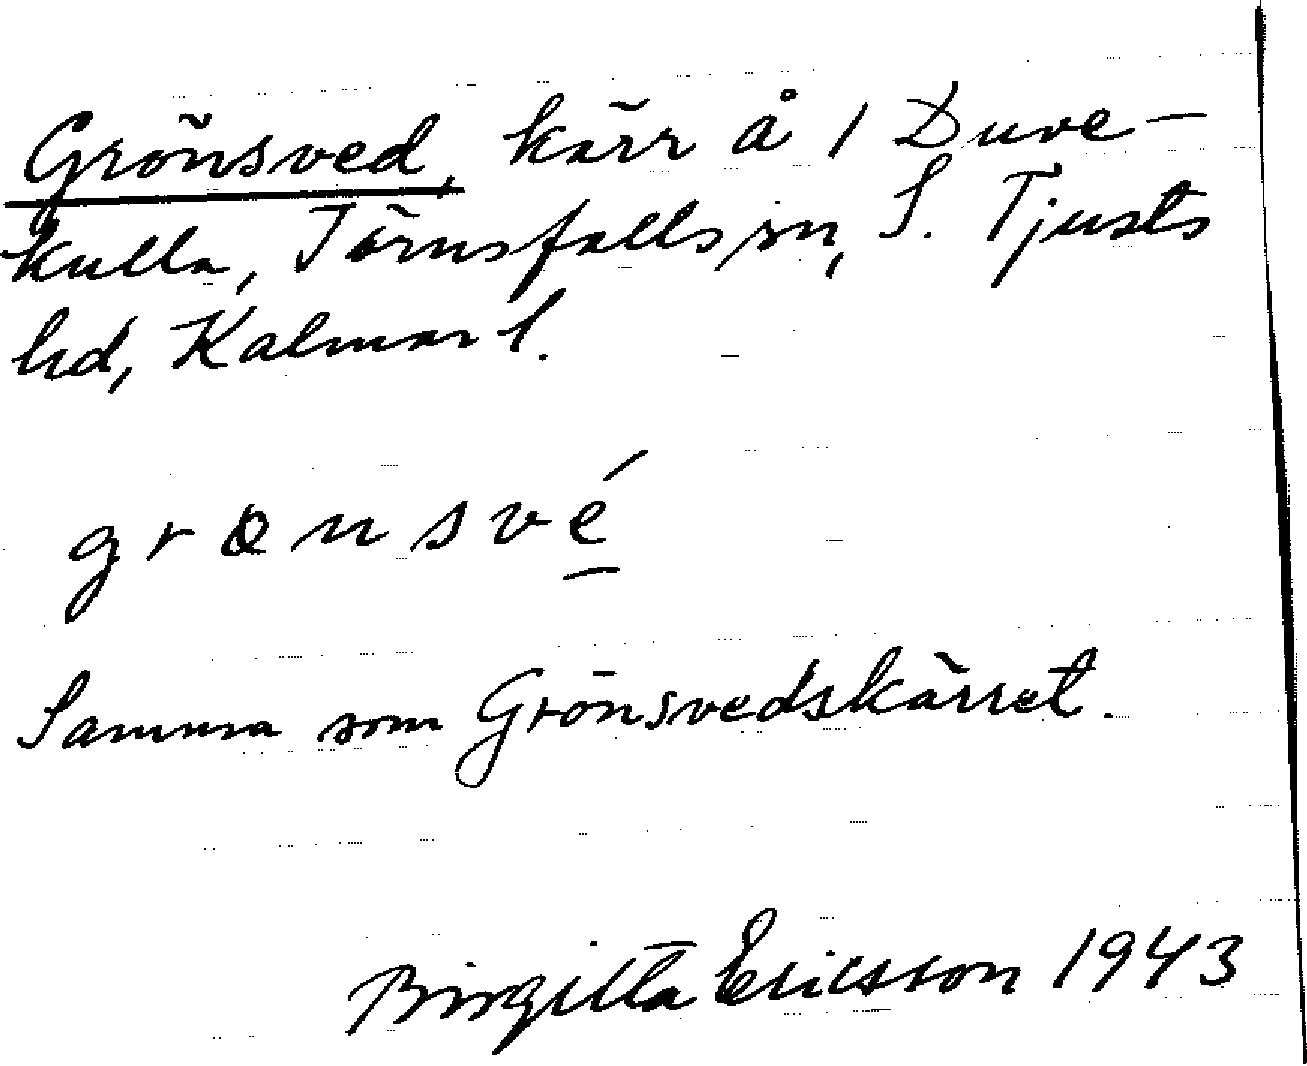 Grönsved, kärr å 1 Duve-
kulla, Törnsfalls sn, S. Tjusts
hd, Kalmar l.
grɵnsvé
Samma som Grönsvedskärret.
Birgitta Ericsson 1943